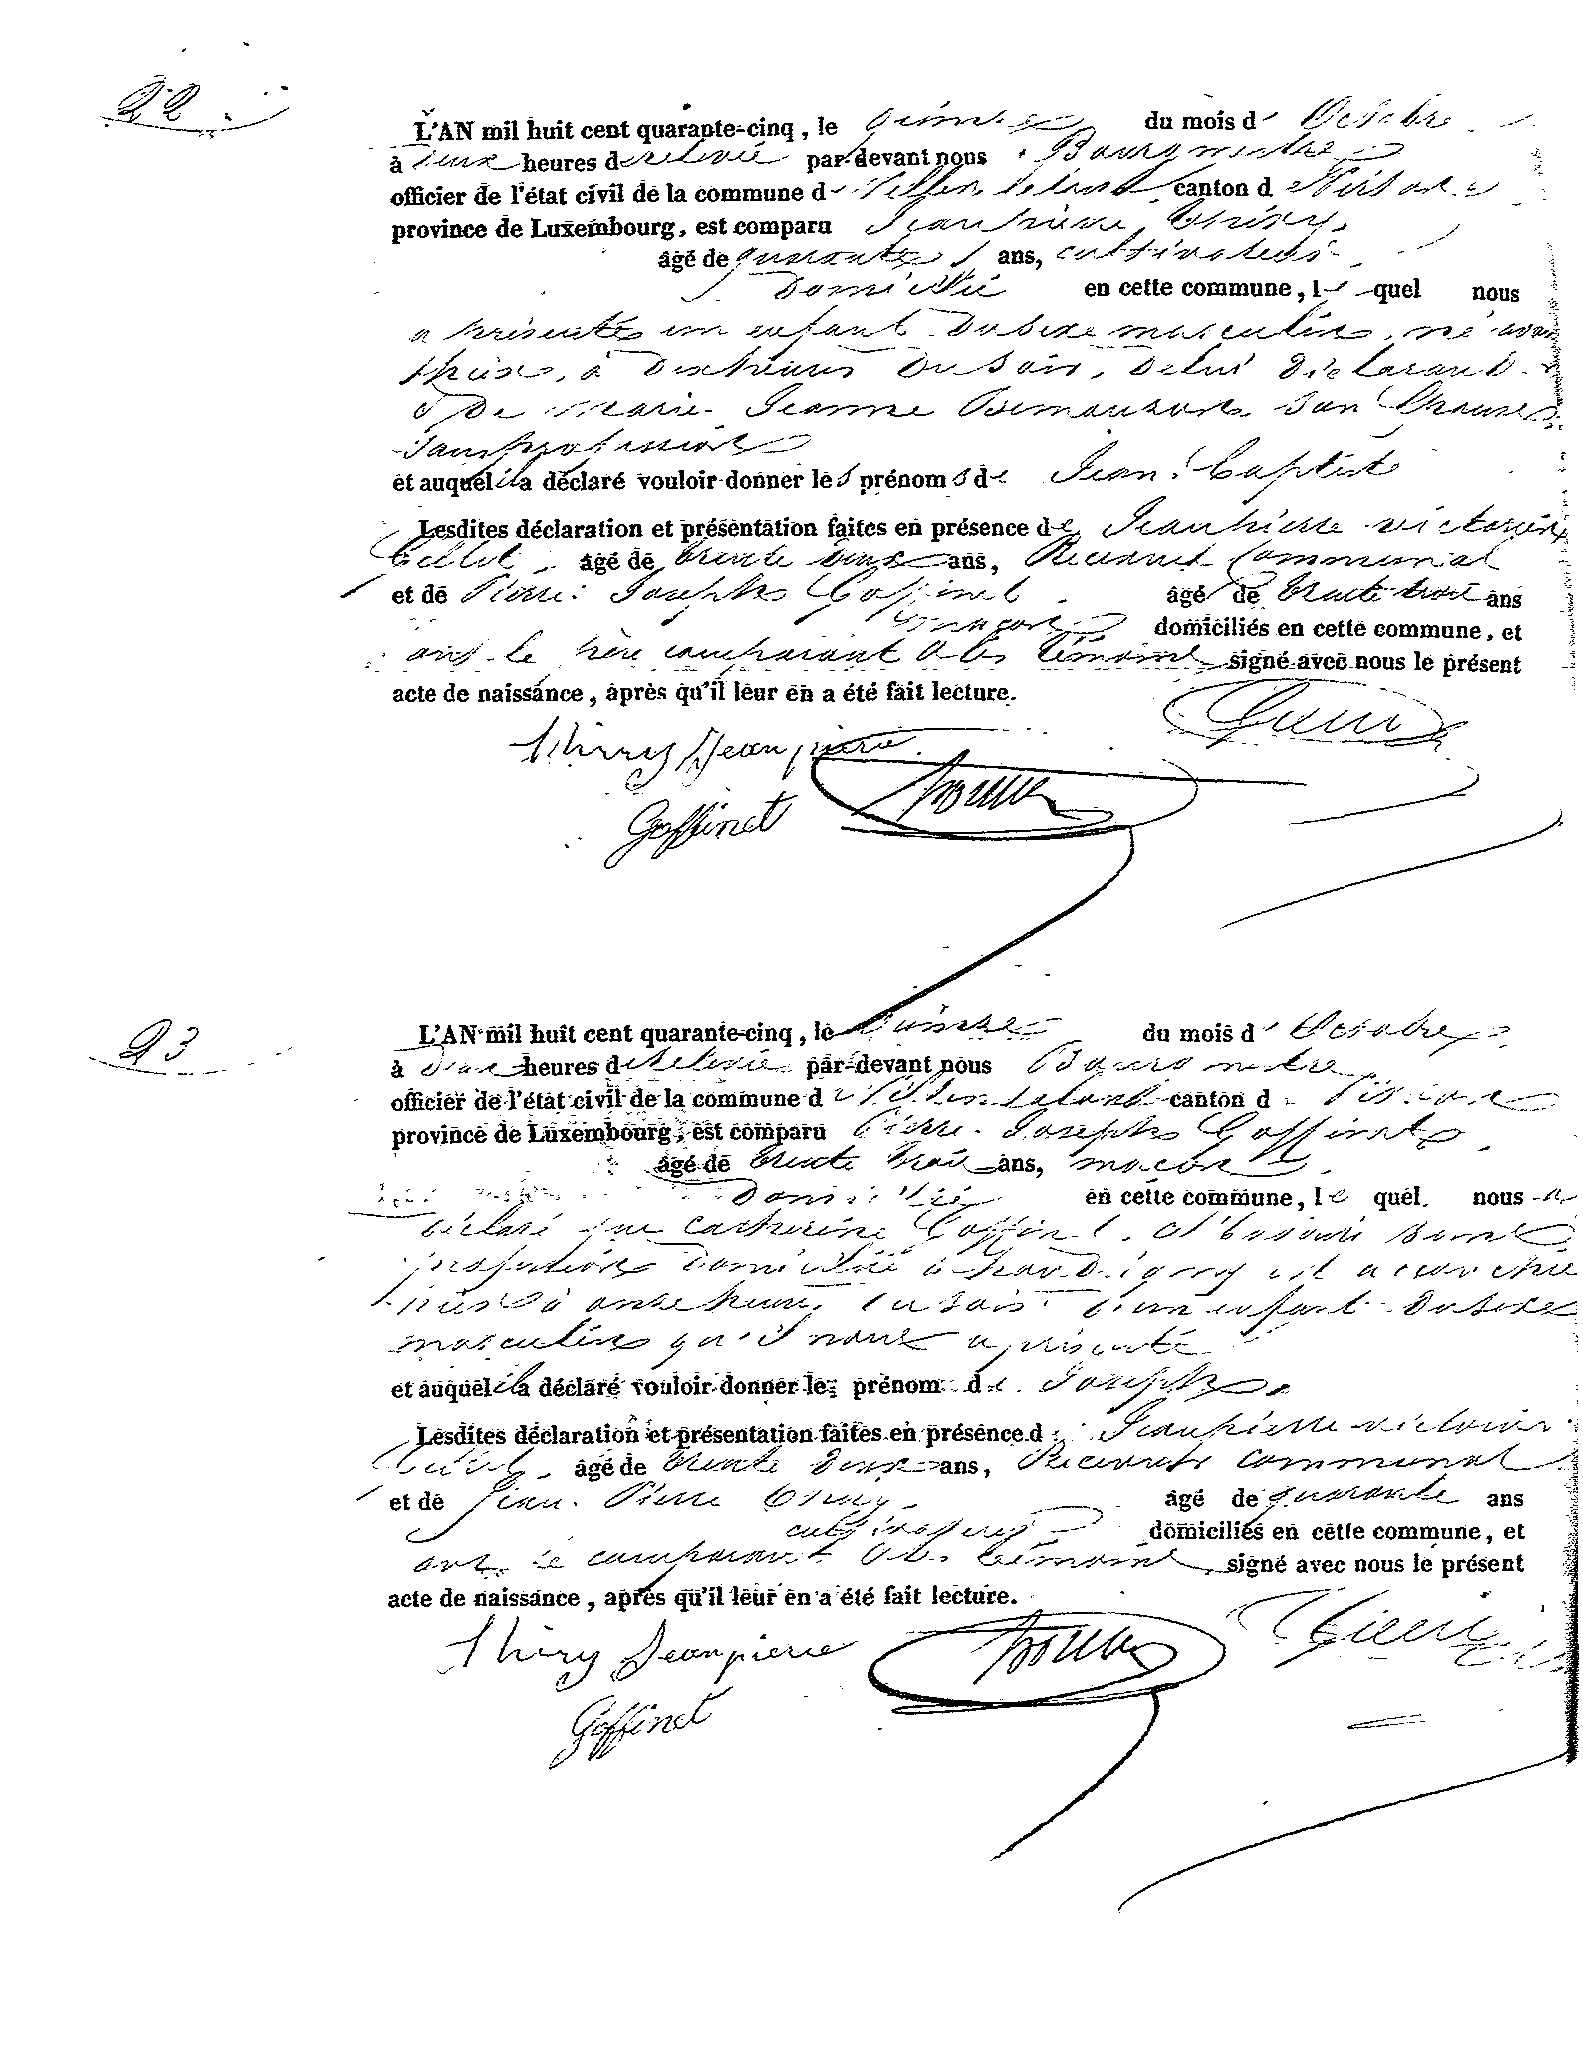 22
L'AN mil huit cent quarante-cinq, le quinze du mois d'Octobre
à deux heures de relevée par-devant nous Bourgmestre
officier de l'état civil de la commune de canton de Virton
province de Luxembourg, est comparu Jeanpierre Thiry
âgé de quarante ans, cultivateur
Domicilié en cette commune, le quel nous
a présenté un enfant du sexe masculin, né avant
hier, à dix heures du soir, de lui déclarant
& de Marie Jeanne son Epouse
sans profession
et auquel il a déclaré vouloir donner les prénoms de Jean Baptiste
Lesdites déclaration et présentation faites en présence de Jeanpierre victorien
âgé de trente deux ans, Receveur Communal
et de Pierre Joseph Goffinet âgé de trente trois ans
maçon domiciliés en cette commune, et
ont le père comparant & les témoins signé avec nous le présent
acte de naissance, après qu'il leur en a été fait lecture.
Thiry Jeanpierre
Goffinet
23
L'AN mil huit cent quarante-cinq, le quinze du mois d'Octobre
à deux heures de relevée par-devant nous Bourgmestre
officier de l'état civil de la commune de canton de
province de Luxembourg, est comparu Pierre Joseph Goffinet
âgé de trente trois ans, maçon
Domicilié en cette commune, le quel nous a
déclaré que Catherine Goffinet, sans
profession domiciliée à est accouchée
hier à onze heures du soir d'un enfant du sexe
masculin qu'il nous a présenté
et auquel il a déclaré vouloir donner le prénom de Joseph
Lesdites déclaration et présentation faites en présence de Jeanpierre victorien
âgé de trente deux ans, Receveur Communal
et de Jean Pierre Thiry âgé de quarante ans
cultivateur domiciliés en cette commune, et
ont le comparant & les témoins signé avec nous le présent
acte de naissance, après qu'il leur en a été fait lecture.
Thiry Jeanpierre
Goffinet